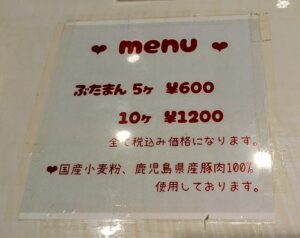 ❤ menu ❤
ぶたまん 5ヶ ¥600
10ヶ ¥1200
全て税込み価格になります。
❤国産小麦粉、鹿児島県産豚肉100%
使用しております。